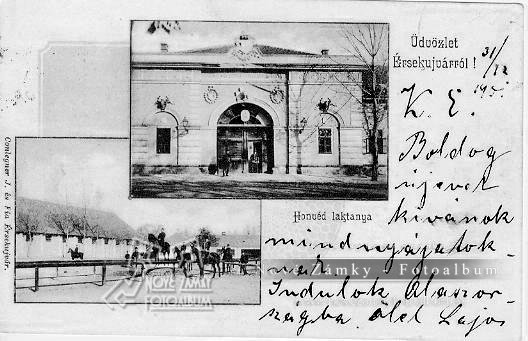 Üdvözlet
Érsekujvárról !
31/12
K. E.
Boldog
újevet
kivánok
mindnyájatok-
nak
Indulok Olaszor-
szágba. ölel Lajos
Honvéd laktanya
Conlegner J. és Fia Érsekujvár.
Nové Zámky - Fotoalbum
NOVÉ ZÁMKY
FOTOALBUM